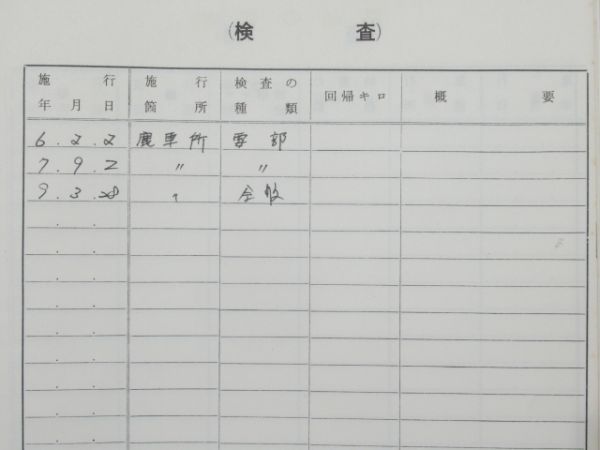 (検 査)
施行年月日 施行箇所 検査の種類 回帰キロ 概要
6.2.2 鹿車所 要部
7.9.2 〃 〃
9.3.28 〃 全般